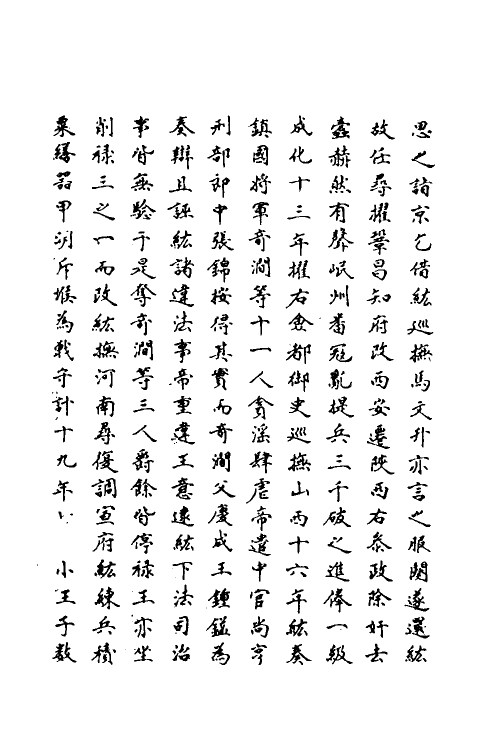 思之詣京乞借紘巡撫馬文升亦言之服闋遂還紘
故任尋擢鞏昌知府改西安遷陝西右叅政除奸去
蠹赫然有聲岷州番冦亂提兵三千破之進俸一級
成化十三年擢右僉都御史巡撫山西十六年紘奏
鎮國將軍竒澗等十一人貪滛肆虐帝遣中官尚亨
刑部郎中張錦按得其實而竒澗父慶成王鍾鎰為
奏辯且誣紘諸違法事帝重違王意逮紘下法司治
事皆無驗于是奪竒澗等三人爵餘皆停禄王亦坐
削禄三之一而改紘撫河南尋復調宣府紘練兵積
粟繕噐甲浏斥堠為戰守計十九年 小王子數